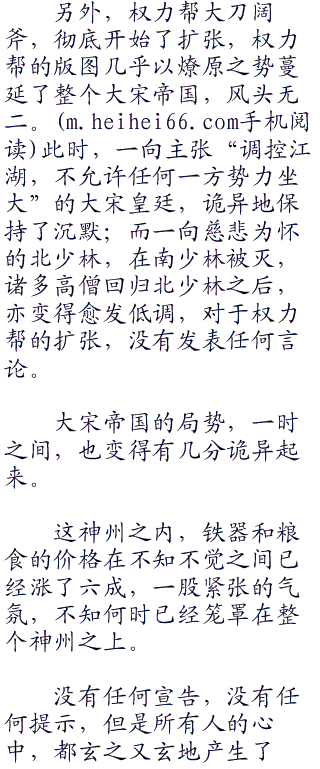 另外，权力帮大刀阔
斧，彻底开始了扩张，权力
帮的版图几乎以燎原之势蔓
延了整个大宋帝国，风头无
二。(m.heihei66.com手机阅
读)此时，一向主张“调控江
湖，不允许任何一方势力坐
大”的大宋皇廷，诡异地保
持了沉默；而一向慈悲为怀
的北少林，在南少林被灭，
诸多高僧回归北少林之后，
亦变得愈发低调，对于权力
帮的扩张，没有发表任何言
论。
大宋帝国的局势，一时
之间，也变得有几分诡异起
来。
这神州之内，铁器和粮
食的价格在不知不觉之间已
经涨了六成，一股紧张的气
氛，不知何时已经笼罩在整
个神州之上。
没有任何宣告，没有任
何提示，但是所有人的心
中，都玄之又玄地产生了